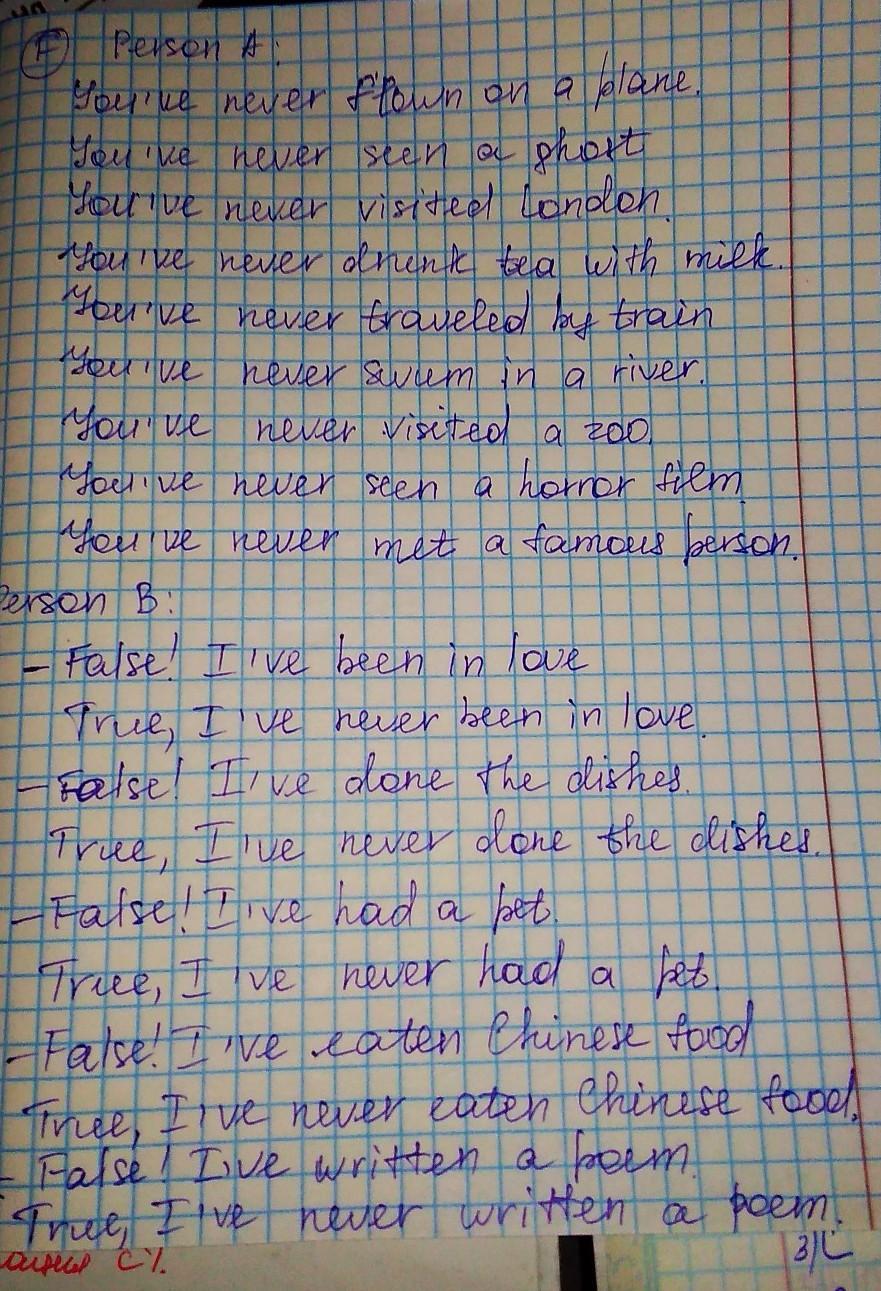 F Person A:
You've never flown on a plane.
You've never seen a ghost
You've never visited London.
You've never drunk tea with milk.
You've never traveled by train
You've never swum in a river.
You've never visited a zoo.
You've never seen a horror film.
You've never met a famous person.
Person B:
- False! I've been in love
True, I've never been in love.
- False! I've done the dishes.
True, I've never done the dishes.
- False! I've had a pet.
True, I've never had a pet.
- False! I've eaten Chinese food
True, I've never eaten Chinese food.
- False! I've written a poem.
True, I've never written a poem.